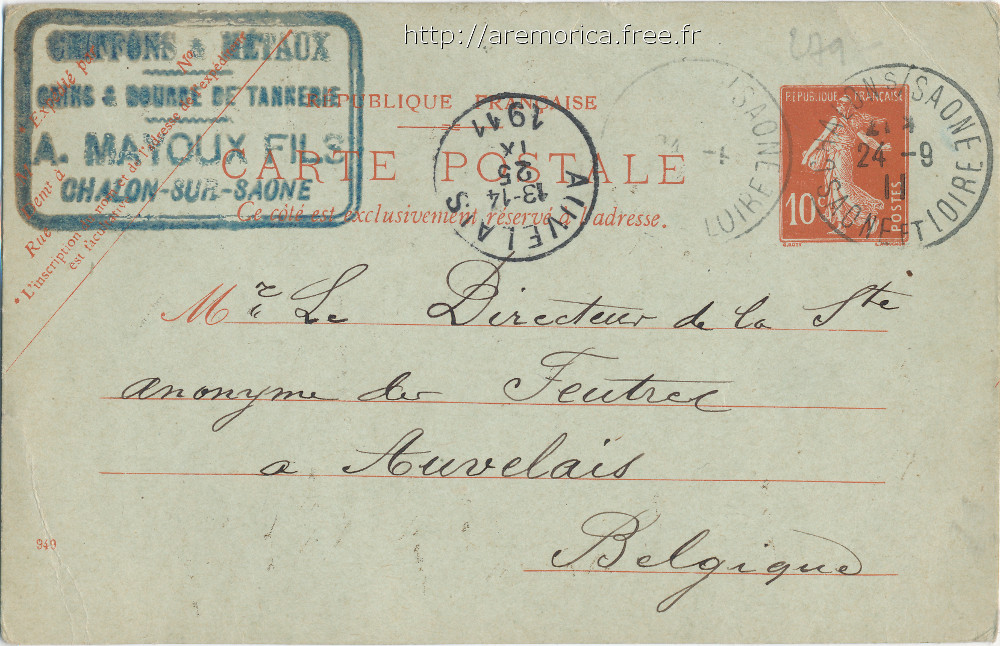 http://aremorica.free.fr
279
CHIFFONS & MÉTAUX
CRINS & BOURRE DE TANNERIE
A. MATOUX FILS
CHALON-SUR-SAONE
Expédié par
Rue
N°
* L'inscription du nom et de l'adresse de l'expéditeur
est facultative
RÉPUBLIQUE FRANÇAISE
CARTE POSTALE
Ce côté est exclusivement réservé à l'adresse.
AUVELAIS
13-14
25
IX
1911
(SAONE
LOIRE)
RÉPUBLIQUE FRANÇAISE
10c
POSTES
24 - 9
11
SAONE ET LOIRE
Mr Le Directeur de la Sté
anonyme des Feutres
a Auvelais
Belgique
940